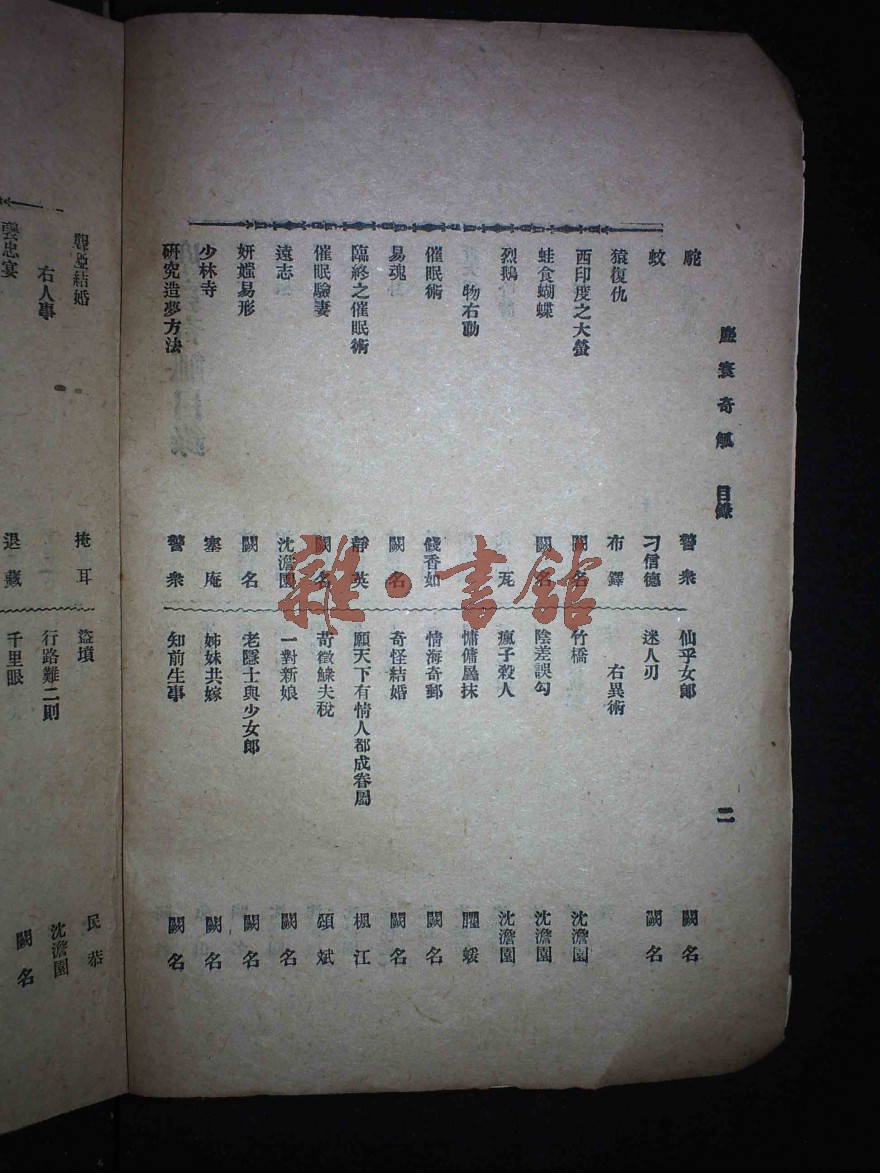 塵寰奇觚 目錄 二
駝 警衆
蚊 刁信德
猿復仇 布鐸
西印度之大螢 闕名
蛙食蝴蝶 闕名
烈鵝
物右動
催眠術 錢香如
易魂 闕名
臨終之催眠術 靜英
催眠驗妻 闕名
遠志 沈澹園
妍媸易形 闕名
少林寺 塞庵
研究造夢方法 警衆
仙乎女郎 闕名
迷人刃 闕名
右異術
竹橋 沈澹園
陰差誤勾 沈澹園
瘋子殺人 沈澹園
慵傭 抹
情海奇郵 闕名
奇怪結婚 闕名
願天下有情人都成眷屬 楓江
苛徵鰥夫稅 頌斌
一對新娘 闕名
老隱士與少女郎 闕名
姊妹共嫁 闕名
知前生事 闕名
聾啞結婚 掩耳
右人事
忠宴 退藏
盜墳 民恭
行路難二則 沈澹園
千里眼 闕名
雜·書館